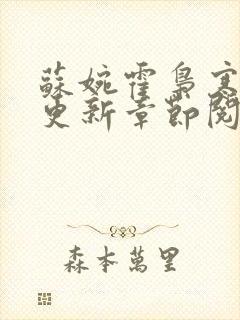 蘇婉霍梟寒
更新章節閱
森本萬里